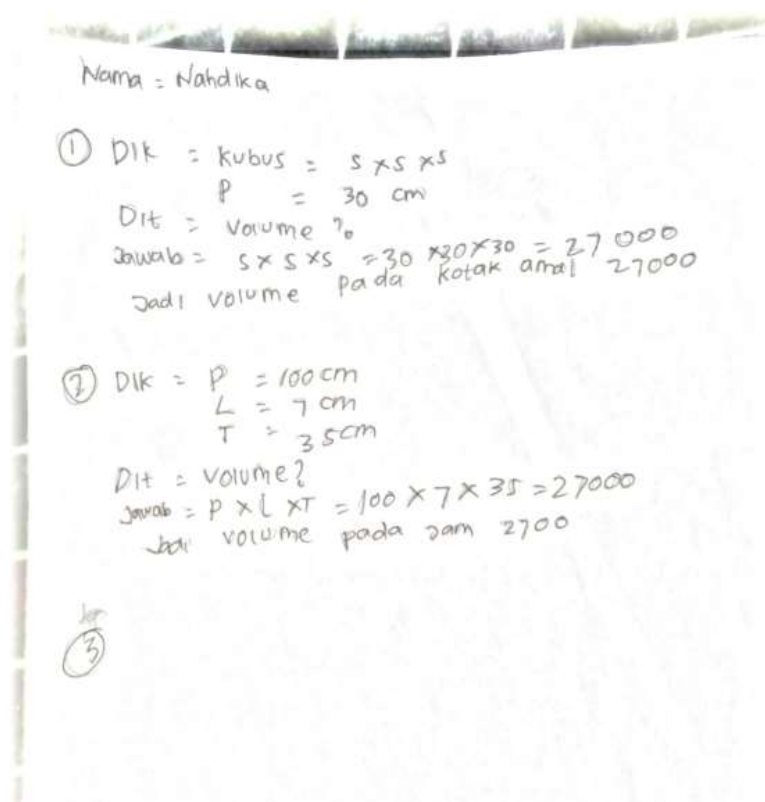 Nama = Nahdika
① Dik = Kubus = s x s x s
P = 30 cm
Dit = Volume ?
Jawab = s x s x s = 30 x 30 x 30 = 27 000
Jadi volume pada kotak amal 27000
② Dik = P = 100 cm
L = 7 cm
T = 35 cm
Dit = Volume?
Jawab = P x L x T = 100 x 7 x 35 = 27000
Jadi volume pada Jam 2700
③